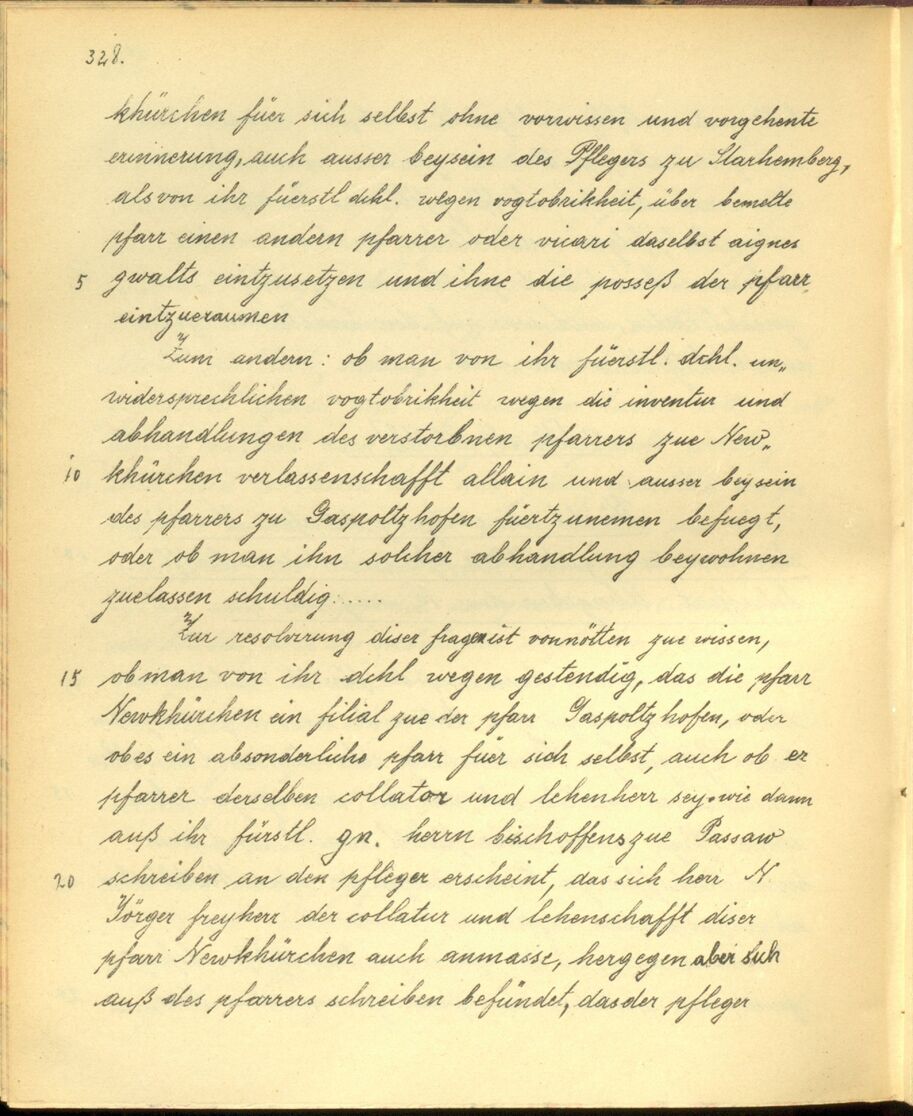 328.
khürchen füer sich selbst ohne vorwissen und vorgehente
erinnerung, auch ausser beysein des Pflegers zu Starhemberg,
als von ihr füerstl dchl. wegen vogtobrikheit, über bemelte
pfarr einen andern pfarrer oder vicari daselbst aignes
5 gwalts eintzusetzen und ihne die posseß der pfarr
eintzueraumen
Zum andern: ob man von ihr füerstl. dchl. un„
widersprechlichen vogtobrikheit wegen die inventur und
abhandlungen des verstorbnen pfarrers zue New„
10 khürchen verlassenschafft allain und ausser beysein
des pfarrers zu Gaspoltzhofen fürtzunemen befuegt,
oder ob man ihn solcher abhandlung beywohnen
zuelassen schuldig.....
Zur resolvirung diser frag ist vonnötten zue wissen,
15 ob man von ihr dchl wegen gestendig, das die pfarr
Newkhürchen ein filial zue der pfarr Gaspoltzhofen, oder
ob es ein absonderliche pfarr füer sich selbst, auch ob er
pfarrer derselben collator und lehenherr sey. wie dann
auß ihr fürstl. gn. herrn bischoffens zue Passaw
20 schreiben an den pfleger erscheint, das sich herr N
Jörger freyherr der collatur und lehenschafft diser
pfarr Newkhürchen auch anmasse, hergegen aber sich
auß des pfarrers schreiben befündet, das der pfleger